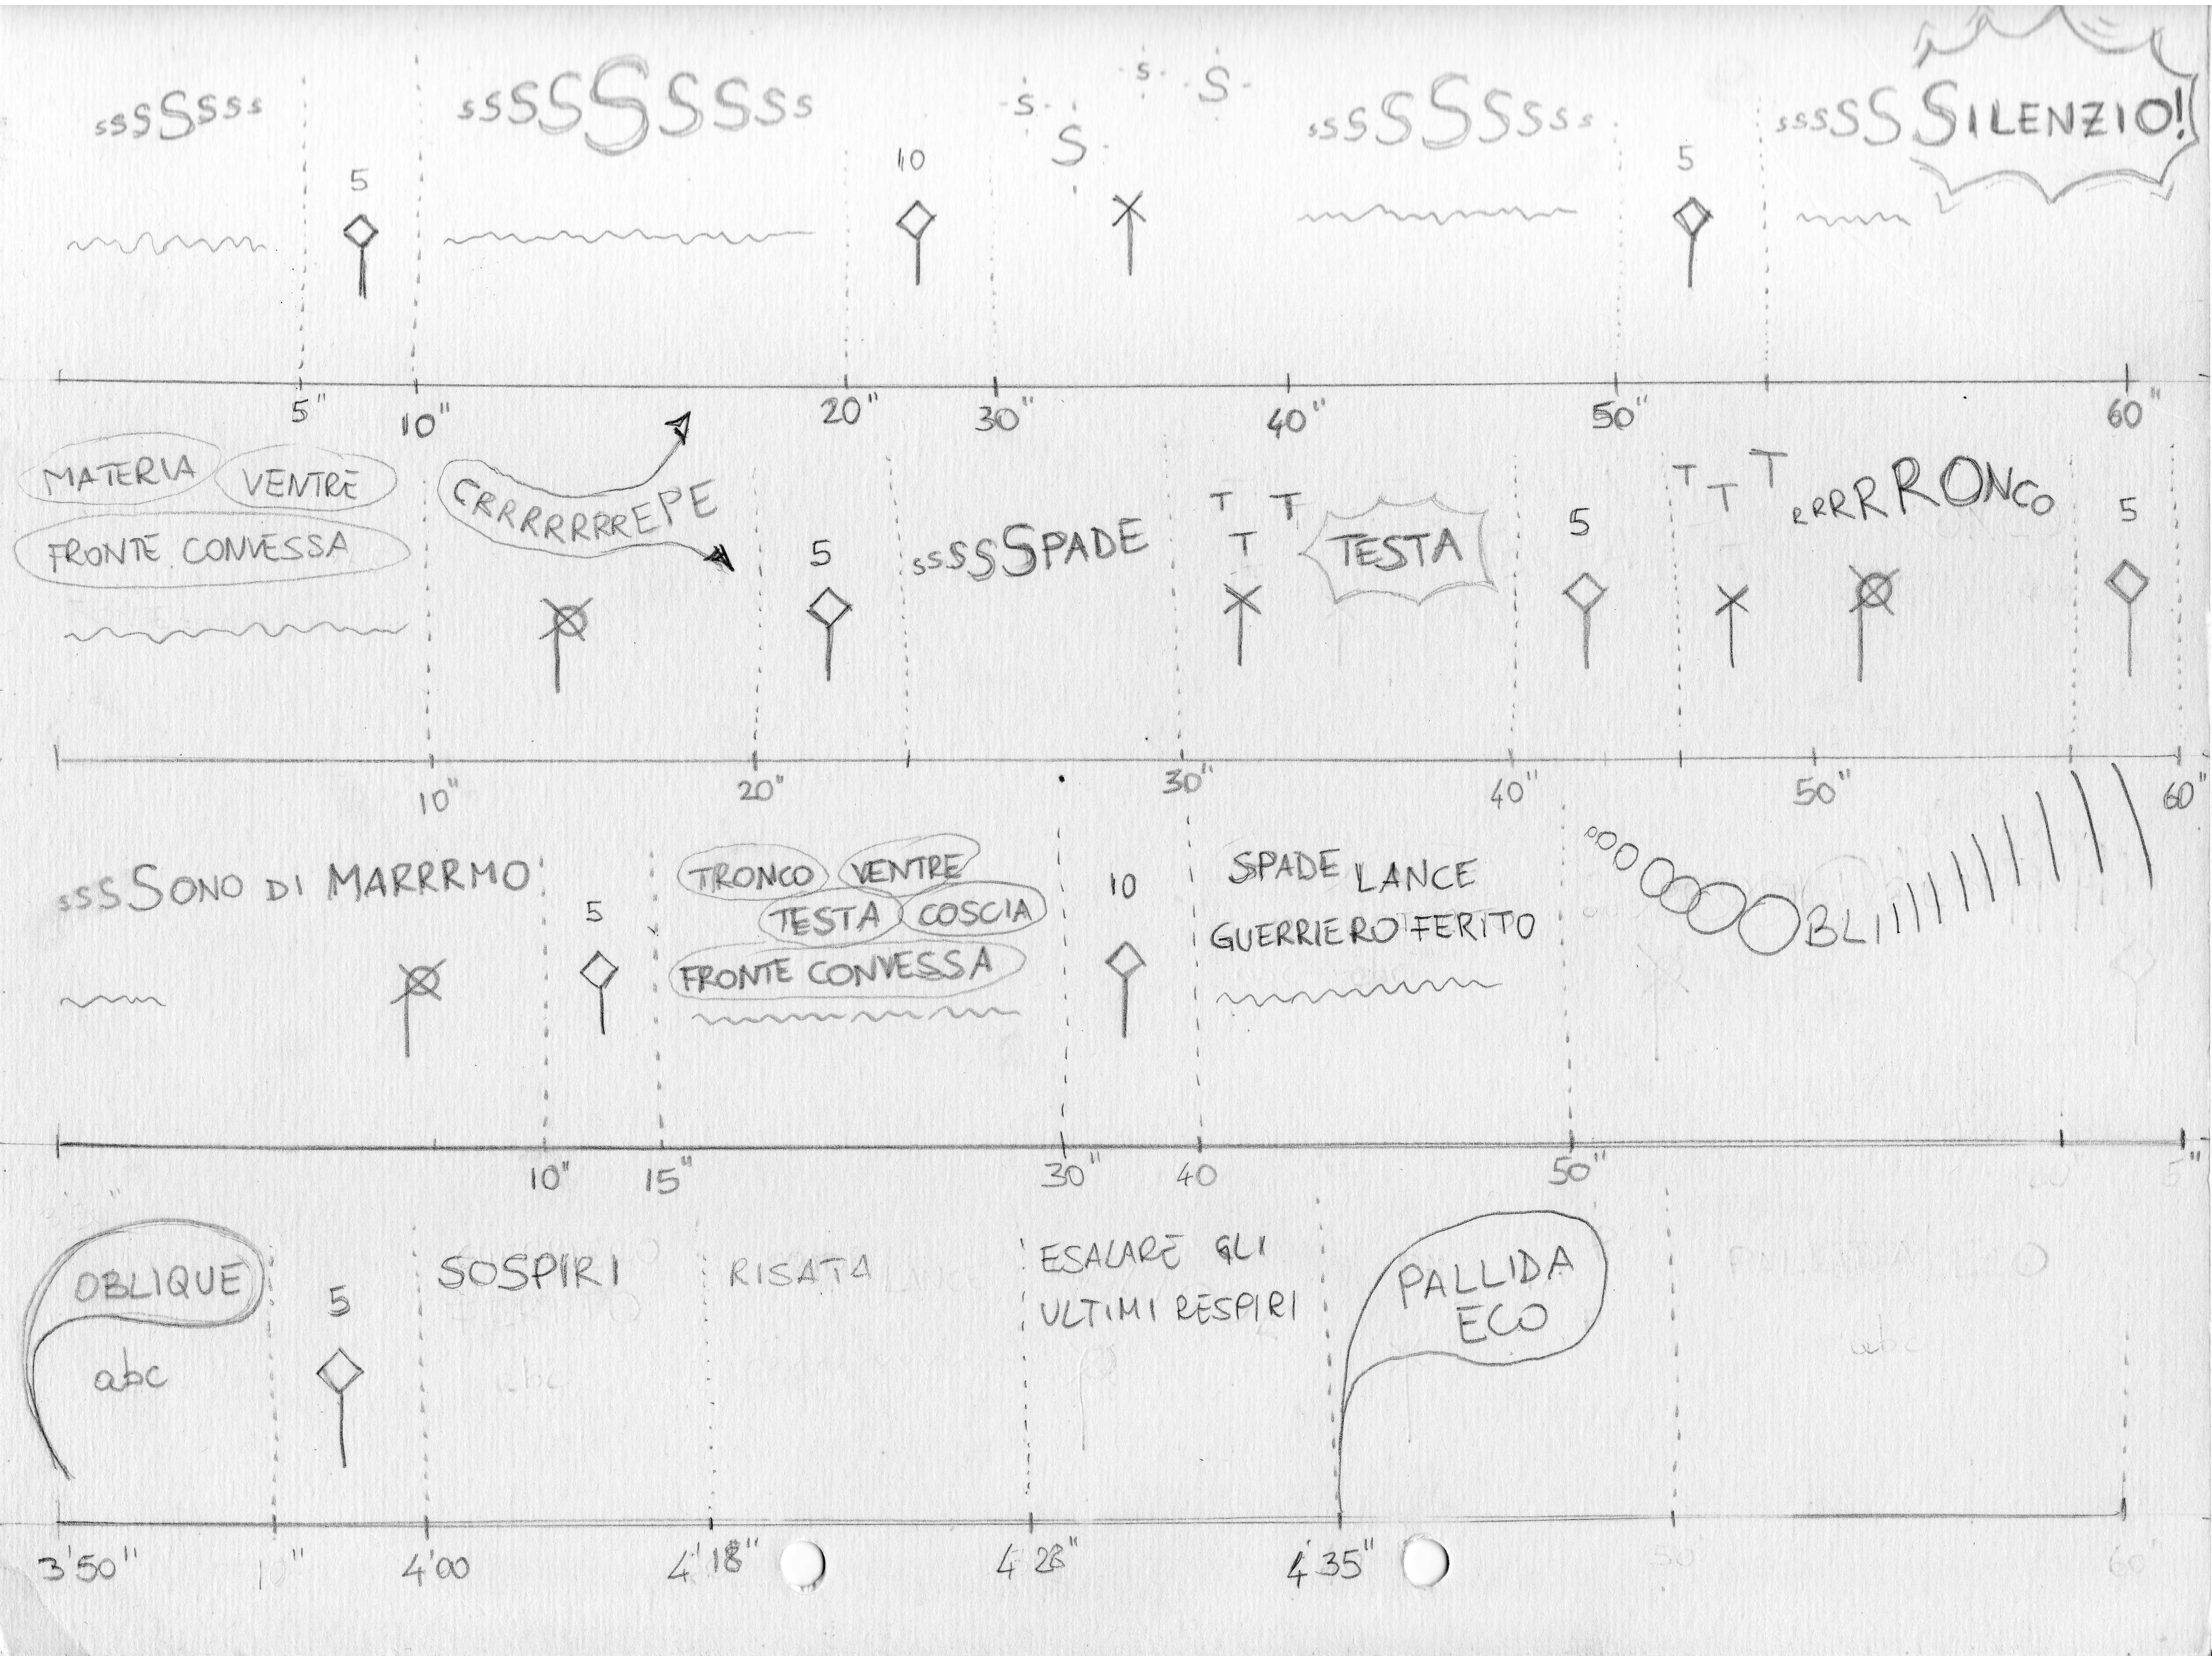 sssSssss
5
sssssSsssss
10
s
S
s
S
ssssSsssss
5
sssSSSILENZIO!
5"
10"
20"
30"
40"
50"
60"
MATERIA
VENTRE
FRONTE CONVESSA
CRRRRRRREPE
5
ssssSPADE
T
T
T
TESTA
5
T
T
T
RRRRRONCO
5
10"
20"
30"
40"
50"
60"
sssSONO DI MARRRMO
5
TRONCO
VENTRE
TESTA
COSCIA
FRONTE CONVESSA
10
SPADE LANCE
GUERRIERO FERITO
ooooooOBLIIIIIIIIII
10"
15"
30"
40
50"
5"
OBLIQUE
abc
5
SOSPIRI
RISATA
ESALARE GLI
ULTIMI RESPIRI
PALLIDA
ECO
abc
3'50"
10"
4'00
4'18"
4'28"
4'35"
50
60"